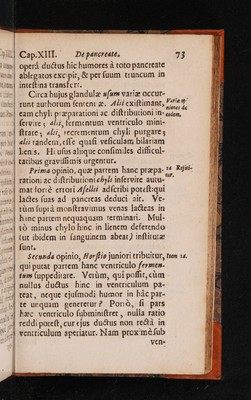 Cap.XIII. De pancreate. 73
operâ ductus hic humores à toto pancreate
ablegatos excipit, & per suum truncum in
intestina transfert.
Circa hujus glandulæ usum variæ occur-
runt authorum sententiæ. Alii existimant,
eam chyli præparationi ac distributioni in-
servire; alii, fermentum ventriculo mini-
strare; alii, recrementum chyli purgare;
alii tandem, esse quasi vesiculam bilariam
lienis. Hi usus aliique consimiles difficul-
tatibus gravissimis urgentur.
Prima opinio, quæ partem hanc præpa-
rationi ac distributioni chyli inservire autu-
mat forte errori Asellii adscribi potest: qui
lactes suas ad pancreas deduci ait. Ve-
rùm suprà monstravimus venas lacteas in
hanc partem nequaquam terminari. Mul-
tò minus chylo hinc in lienem deferendo
(ut ibidem in sanguinem abeat) institutæ
sunt.
Secunda opinio, Horstio juniori tribuitur,
qui putat partem hanc ventriculo fermen-
tum suppeditare. Verùm, qui possit, cùm
nullus ductus hinc in ventriculum pa-
teat, neque ejusmodi humor in hâc par-
te unquam generetur? Porrò, si pars
hæc ventriculo subministret, nulla ratio
reddi potest, cur ejus ductus non rectà in
ventriculum aperiatur. Nam proximè sub
ven-
Variæ opi-
niones de
1a Rejici-
tur.
Item 2a.